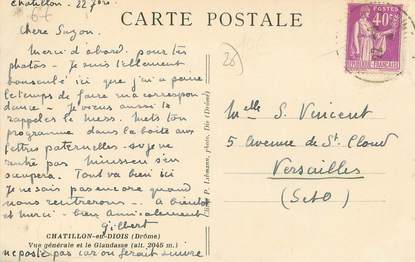 Chatillon. 22
CARTE POSTALE
POSTES
40c
RÉPUBLIQUE FRANÇAISE
26
Chère Suzon.
Merci d'abord pour tes
photos - Je suis tellement
bousculé ici que j'ai à peine
le temps de faire ma correspon
dance - Je viens aussi te
rappeler le mess. Mets ton
programme dans la boite aux
lettres paternelles -
rentre pas
s'en
Tout va bien ici
Je ne sais pas encore quand
nous rentrerons - A bientôt
et merci - bien amicalement
Gilbert
Melle S. Vincent
5 Avenue de St Cloud
Versailles
(S & O)
P. Lehmann, photo, Die (Drôme)
CHATILLON-en-DIOIS (Drôme)
Vue générale et le Glandasse (alt. 2045 m.)
ne poste pas car on ferait suivre